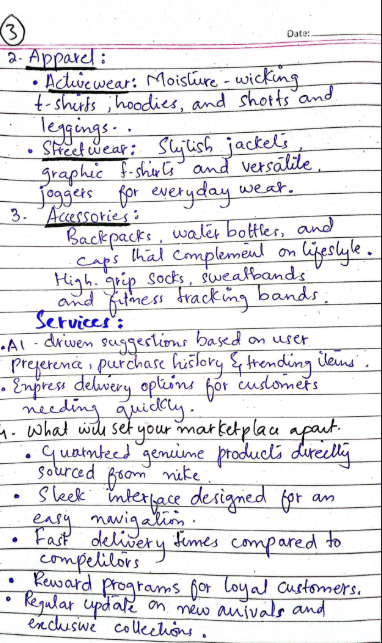 3
Date:
2. Apparel :
• Activewear: Moisture - wicking
t-shirts, hoodies, and shorts and
leggings. .
• Streetwear: Stylish jackets,
graphic t-shirts and versatile,
joggers for everyday wear.
3. Accessories :
Backpacks, water bottles, and
caps that complement on lifestyle.
High. grip socks, sweatbands
and fitness tracking bands.
Services :
• AI - driven suggestions based on user
preference, purchase history & trending items.
• Express delivery options for customers
needing quickly.
4. What will set your marketplace apart.
• Guarnteed genuine products directly
sourced from nike.
• Sleek interface designed for an
easy navigation.
• Fast delivery times compared to
competitors
• Reward programs for loyal customers.
• Regular update on new arrivals and
exclusive collections.